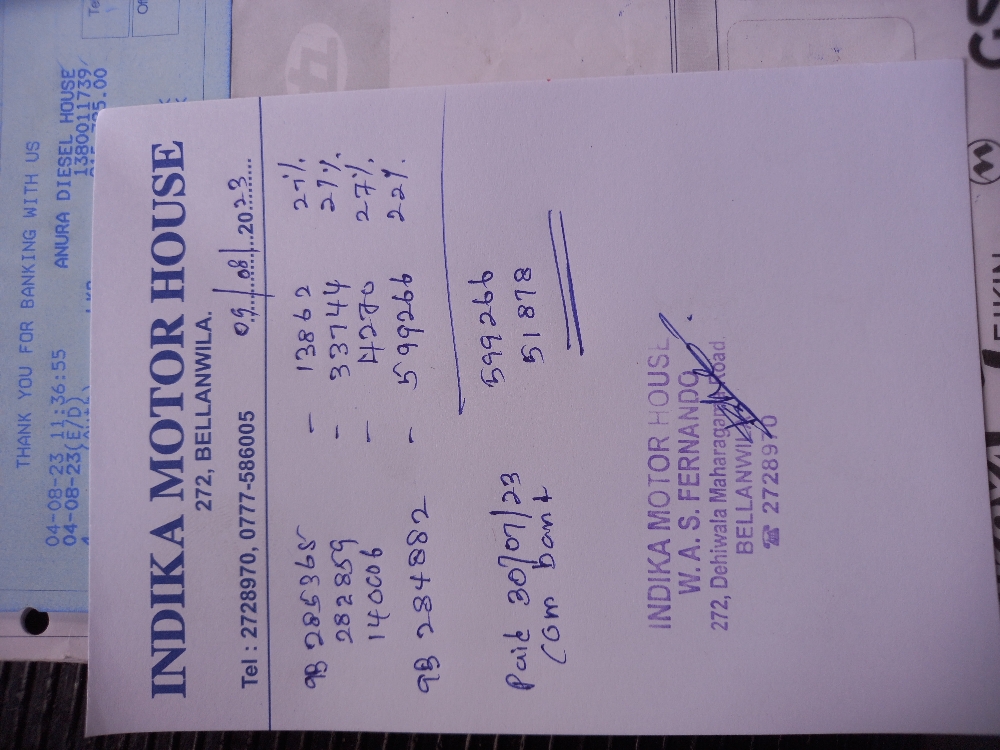 THANK YOU FOR BANKING WITH US
04-08-23 11:36:55 ANURA DIESEL HOUSE
04-08-23(E/D) 1380011739
INDIKA MOTOR HOUSE
272, BELLANWILA.
Tel : 2728970, 0777-586005 09/08/2023
9B 285365 - 13862 27%
282859 - 33744 27%
140006 - 14270 27%
9B 284882 - 599266 22%
Paid 30/07/23 599266
Com bank 51878
INDIKA MOTOR HOUSE
W. A. S. FERNANDO
272, Dehiwala Maharagama Road.
BELLANWILA
☎ 2728970